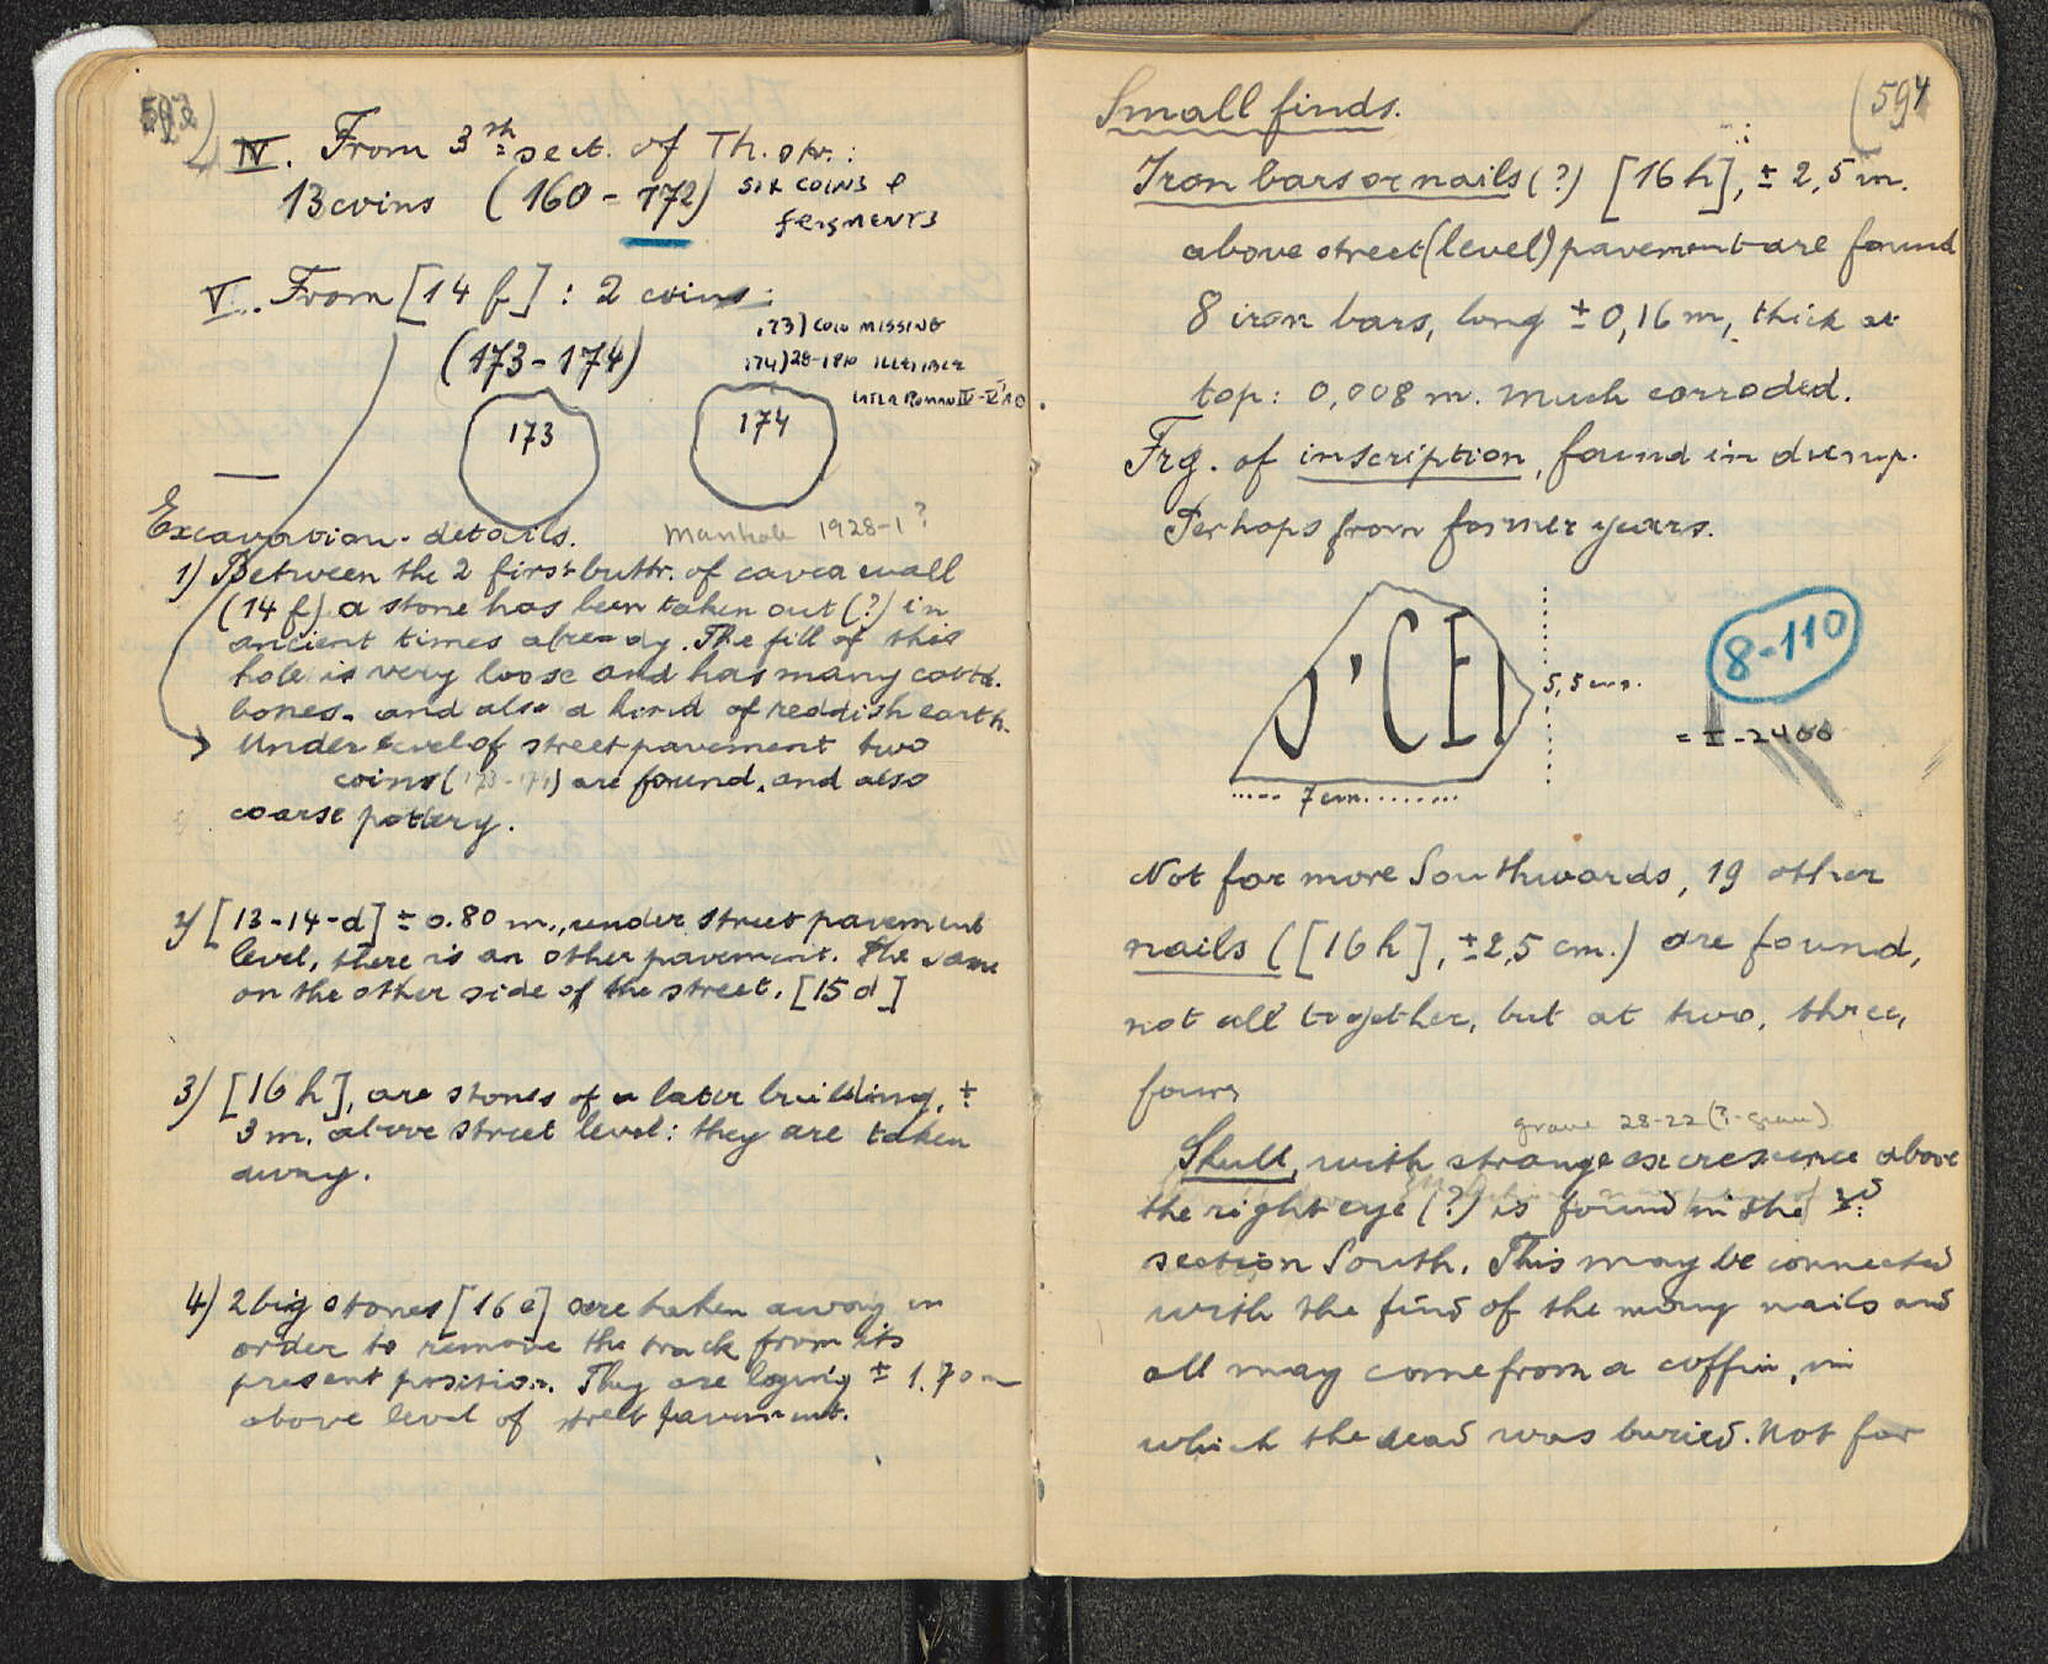 593)
IV. From 3rd sect. of Th. str.:
13 coins (160 - 172) SIX COINS &
FRAGMENTS
V. From [14 f] : 2 coins:
173) COIN MISSING
174) 28-190 ILLEGIBLE
LATER ROMAN IV-V AD
(173-174)
173
174
Excavation-details.
Manhole 1928-1?
1) Between the 2 first buttr. of cavea wall
(14 f) a stone has been taken out (?) in
ancient times already. The fill of this
hole is very loose and has many
bones. and also a kind of reddish earth.
Under level of street pavement two
coins (173-174) are found, and also
coarse pottery.
2) [13-14-d] ± 0.80 m., under street pavement
level, there is an other pavement. The same
on the other side of the street. [15 d]
3) [16 h], are stones of a later building, ±
3 m. above street level: they are taken
away.
4) 2 big stones [16 e] are taken away in
order to remove the track from its
present position. They are lying ± 1.70 m
above level of street pavement.
(594
Small finds.
Iron bars or nails (?) [16 h], ± 2,5 m.
above street (level) pavement are found
8 iron bars, long ± 0,16 m, thick at
top: 0,008 m. Much corroded.
Frg. of inscription, found in dump.
Perhaps from former years.
'CEI
5,5 cm.
7 cm.
8-110
= I - 2400
Not far more Southwards, 19 other
nails ([16 h], ± 2,5 cm.) are found,
not all together, but at two, three,
four,
grave 28-22 (?-grave)
Skull, with strange excrescence above
the right eye (?) is found in the
section South. This may be connected
with the find of the many nails and
all may come from a coffin, in
which the dead was buried. Not far